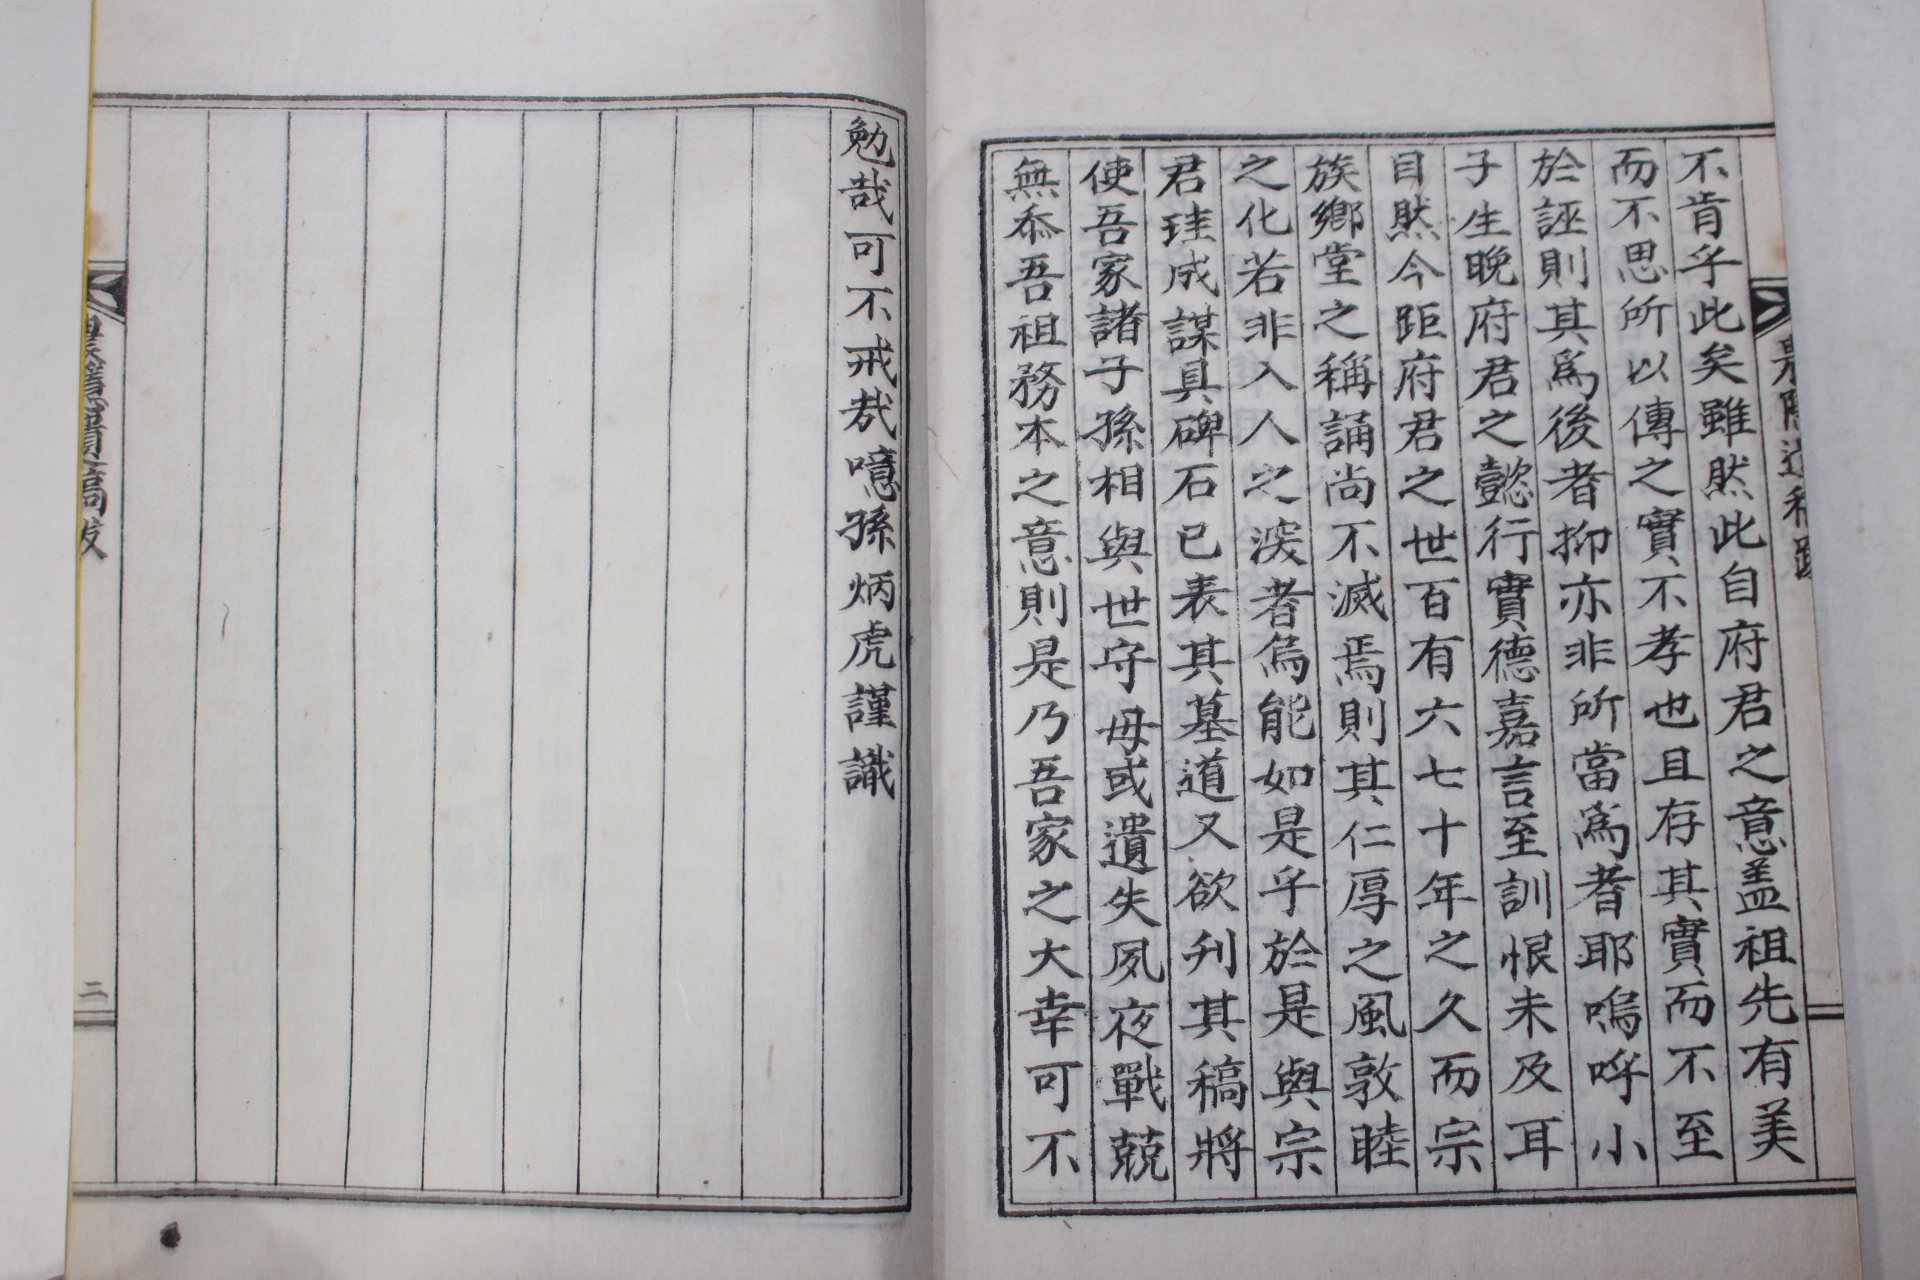 不肯乎此矣雖然此自府君之意盖祖先有美
而不思所以傳之實不孝也且存其實而不至
於誣則其爲後者抑亦非所當爲者耶嗚呼小
子生晩府君之懿行實德嘉言至訓恨未及耳
目然今距府君之世百有六七十年之久而宗
族鄉堂之稱誦尚不滅焉則其仁厚之風敦睦
之化若非入人之深者烏能如是乎於是與宗
君珪成謀具碑石已表其墓道又欲刋其稿將
使吾家諸子孫相與世守毋或遺失夙夜戰兢
無忝吾祖務本之意則是乃吾家之大幸可不
勉哉可不戒哉噫孫炳虎謹識
遺稿跋
二